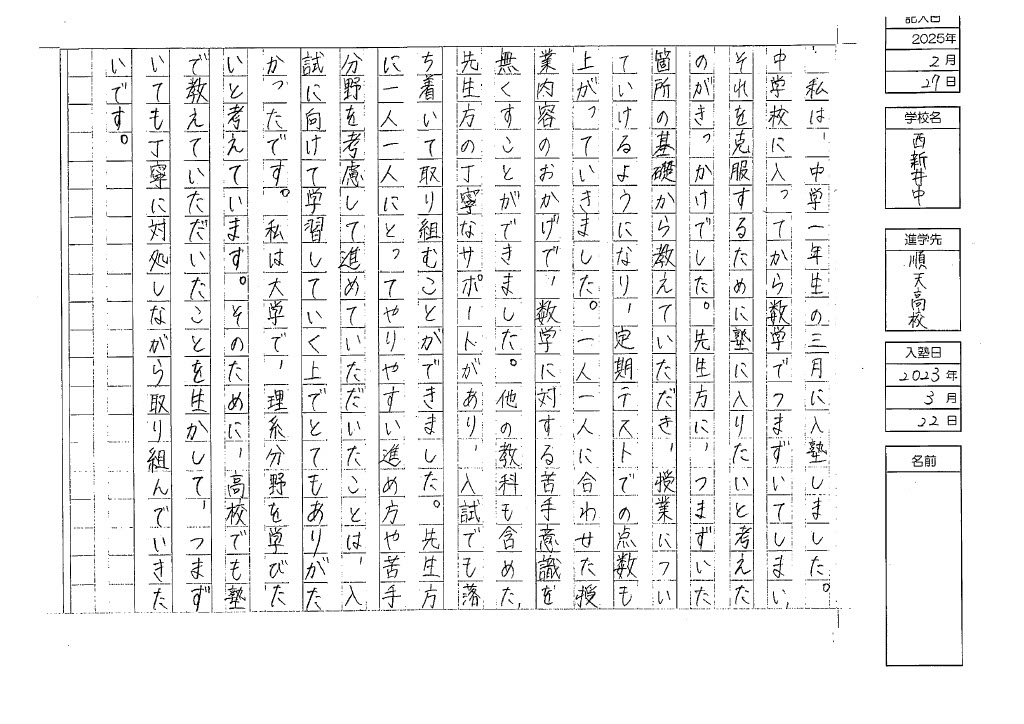 記入日
2025年
2月
27日
学校名
西新井中
進学先
順天高校
入塾日
2023年
3月
22日
名前
私は、中学一年生の三月に入塾しました。
中学校に入ってから数学でつまずいてしまい、
それを克服するために塾に入りたいと考えた
のがきっかけでした。先生方に、つまずいた
箇所の基礎から教えていただき、授業につい
ていけるようになり、定期テストでの点数も
上がっていきました。一人一人に合わせた授
業内容のおかげで、数学に対する苦手意識を
無くすことができました。他の教科も含めた、
先生方の丁寧なサポートがあり、入試でも落
ち着いて取り組むことができました。先生方
に一人一人にとってやりやすい進め方や苦手
分野を考慮して進めていただいたことは、入
試に向けて学習していく上でとてもありがた
かったです。私は大学で、理系分野を学びた
いと考えています。そのために、高校でも塾
で教えていただいたことを生かして、つまず
いても丁寧に対処しながら取り組んでいきた
いです。